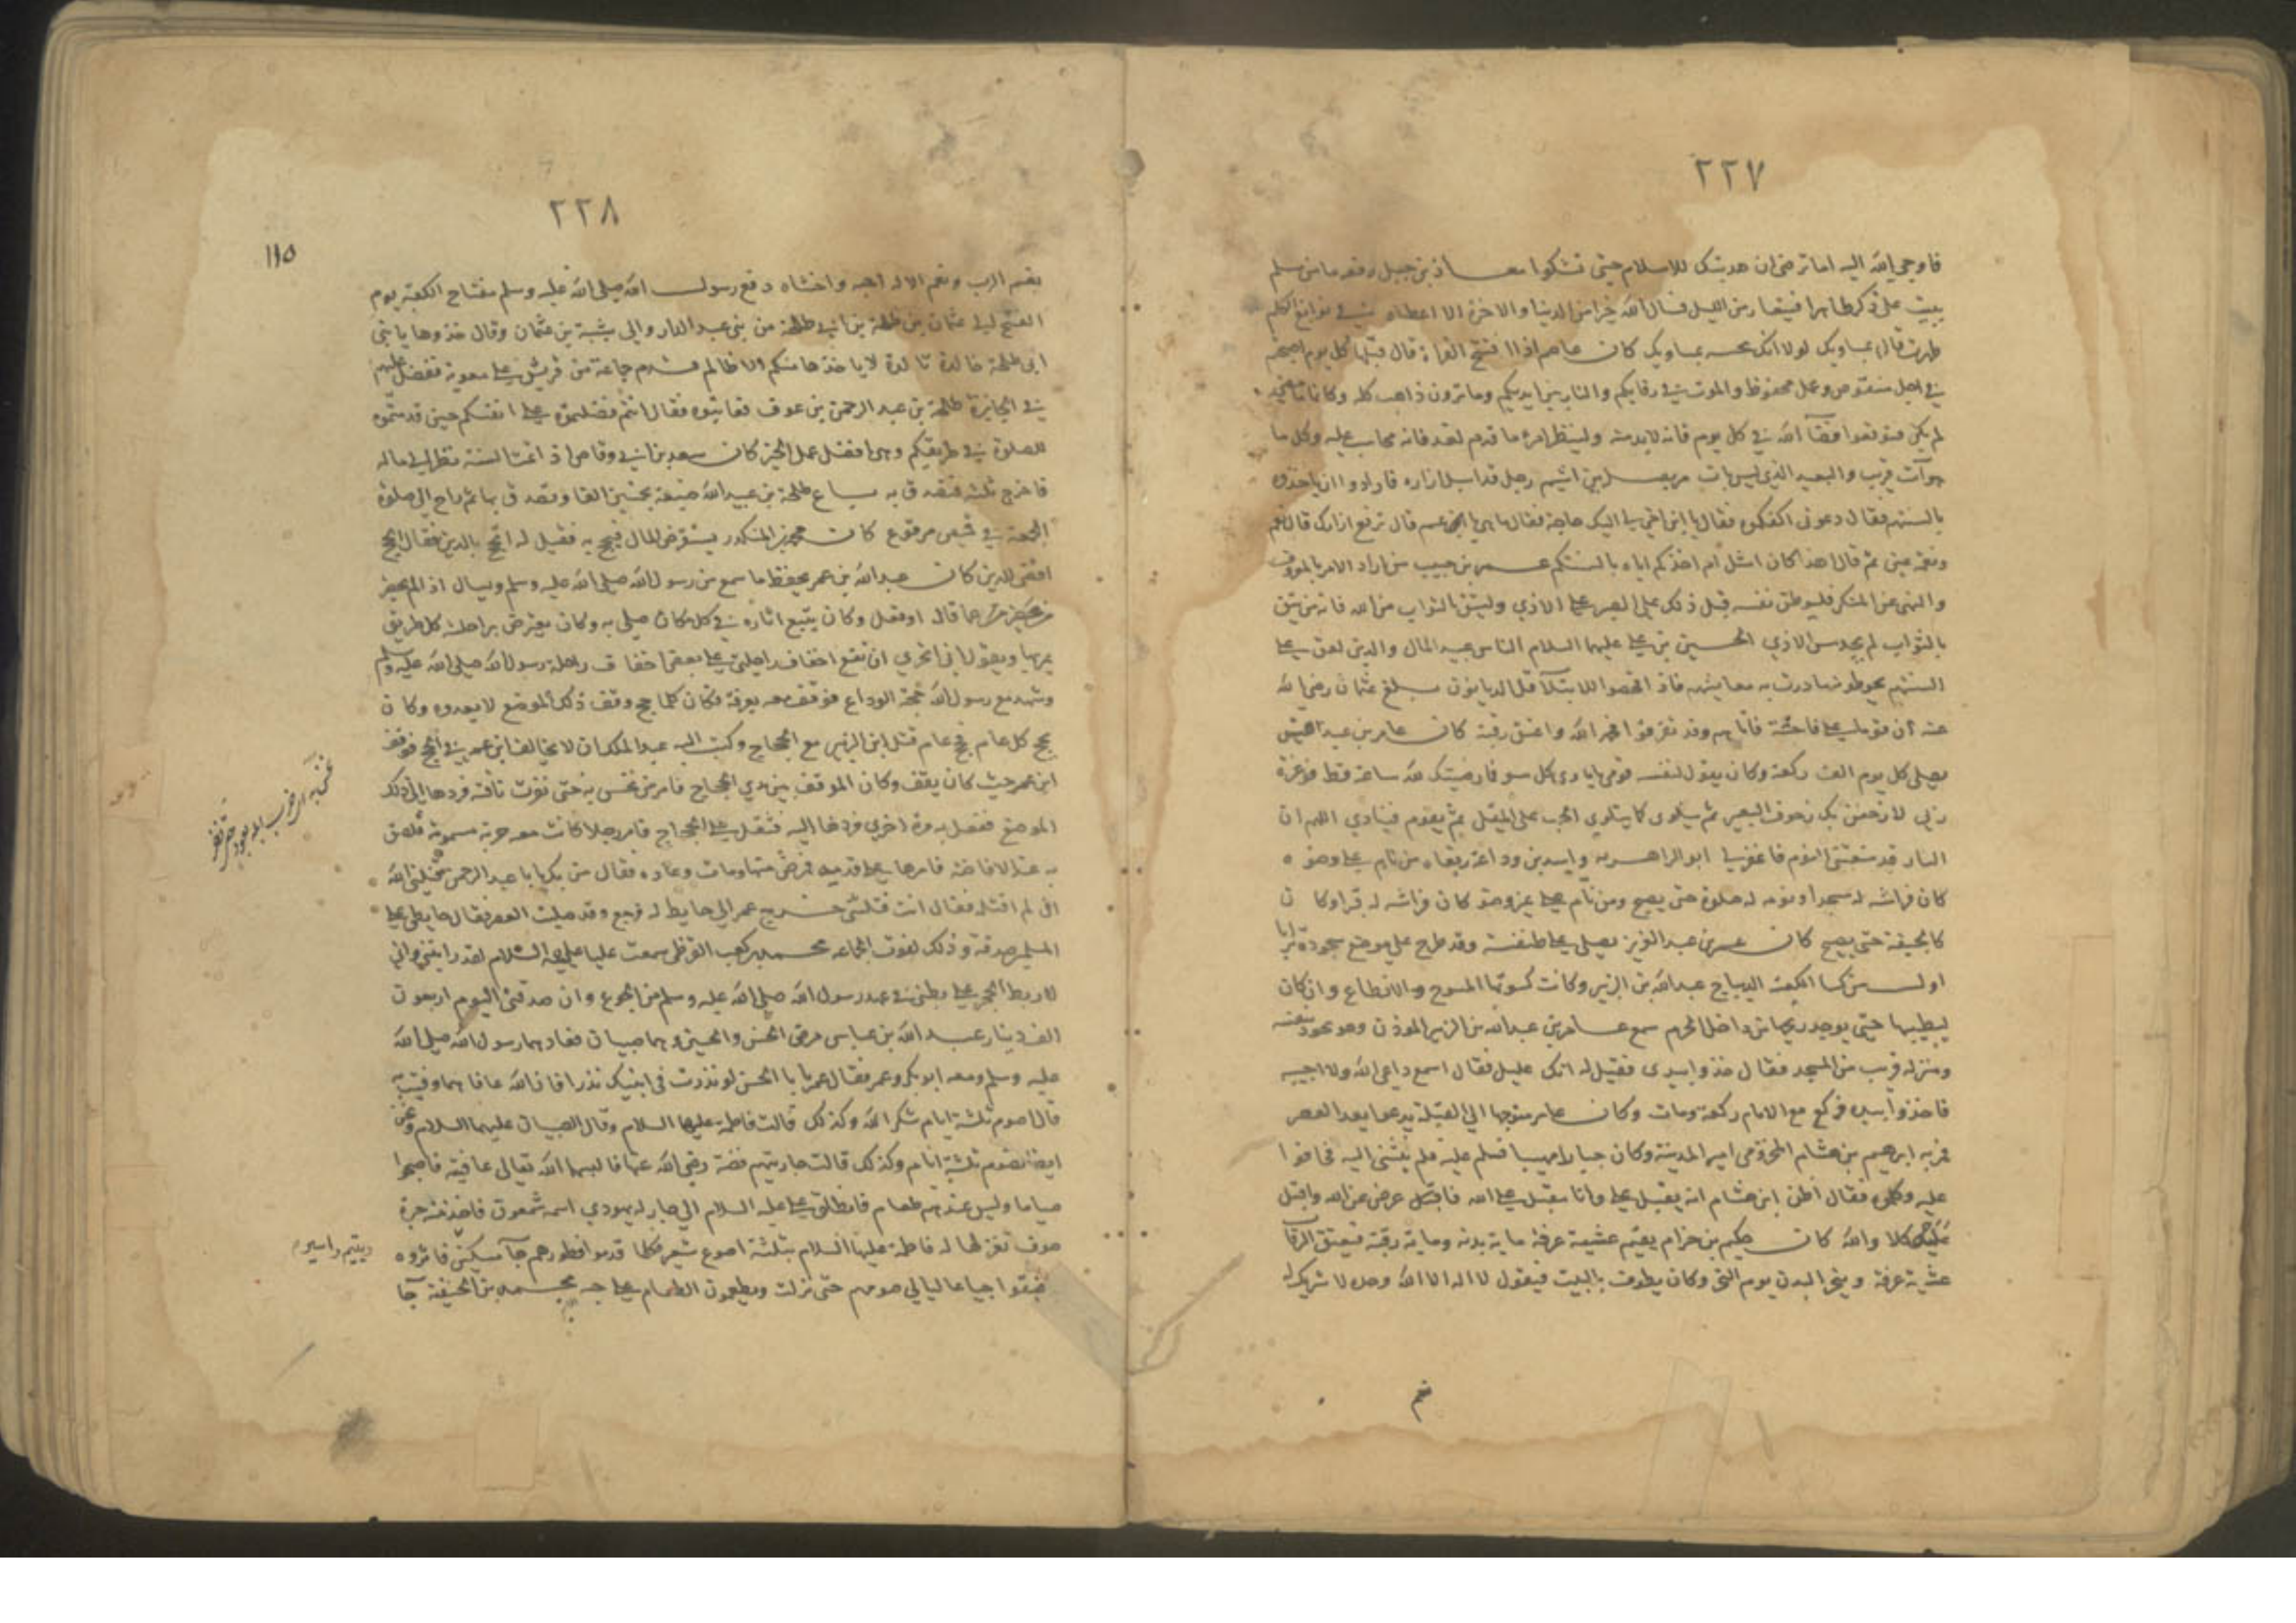 ٢٢٧
فاوحي الله اليه اما ترضى ان هديتك للاسلام حتى تشكوا معاذ بن جبل رفعه ما من مسلم
يبيت على ذكر طاهرا فيتعار من الليل فسال الله خيرا من الدنيا والاخرة الا اعطاه
لولا انك كان عاصم اذا افتتح القراة قال قبلها كل يوم
في اجل منقوص وعمل محفوظ والموت في رقابكم والنار بين ايديكم وما ترون ذاهب كله وكانا
لم يكن فتوقعوا قضآ الله في كل يوم فانه لابد منه ولينظر امرء ما قدم لغد فانه محاسب عليه وكل ما
هو آت قريب والبعيد الذي ليس بآت مر بصلة بن اشيم رجل قد اسبل ازاره فارادوا ان ياخذوه
بالسنتهم فقال دعوني اكفكموه فقال يا ابن اخي لي اليك حاجة فقال ما هي يا عم قال ترفع ازارك قال نعم
ونعمة عين ثم قال اهذا كان امثل أم اخذكم اياه بالسنتكم عمير بن حبيب من اراد الامر بالمعروف
والنهي عن المنكر فليوطن نفسه قبل ذلك على الصبر على الاذي وليثق بالثواب من الله فانه من يثق
بالثواب لم يجد مس الاذي الحسين بن علي عليهما السلام الناس عبيد المال والدين لعق على
السنتهم يحوطونه ما درت به معايشهم فاذا محصوا للابتلآ قل الديانون بلغ عثمان رضي الله
عنه أن قوما على فاحشة فاتاهم وقد تفرقوا فحمد الله واعتق رقبة كان عامر بن عبد القيس
يصلي كل يوم الف ركعة وكان يقول لنفسه قومي ياماوى كل سوء فما رضيتك لله ساعة قط فوعزة
ربي لازحفن بك زحوف البعير ثم يتلوى كما يتلوى الحب على المقلى ثم يقوم فينادي اللهم ان
النار قد منعتني النوم فاغفر لي ابو الزاهرية واسد بن وداعة رفعاه من نام على وضوء
كان فراشه له مسجدا ونومه له صلوة حتى يصبح ومن نام على غير وضوء كان فراشه له قبرا وكان
كالجيفة حتى يصبح كان عمر بن عبد العزيز يصلي على طنفسة وقد طرح على موضع سجوده ترابا
اول من كسا الكعبة الديباج عبد الله بن الزبير وكانت كسوتها المسوح والانطاع وان كان
ليطيبها حتى يوجد ريحها من داخل الحرم سمع عامر بن عبد الله بن الزبير الموذن وهو يجود بنفسه
ومنزله قريب من المسجد فقال خذوا بيدي فقيل له انك عليل فقال اسمع داعي الله ولا اجيبه
فاخذوا بيده فركع مع الامام ركعة ومات وكان عامر متوجها الي القبلة يدعو بعد العصر
فمر به ابرهيم بن هشام المخزومي امير المدينة وكان جبارا مهيبا فسلم عليه فلم ينثنى اليه فخافوا
عليه وكلموه فقال أظن ابن هشام انه يقبل علي وانا مقبل على الله فاقبل عرض عن الله واقبل
عليه كلا والله كان حكيم بن حزام يقيم عشية عرفة ماية بدنة وماية رقبة فيعتق الرقاب
عشية عرفة وينحر البدن يوم النحر وكان يطوف بالبيت فيقول لا اله الا الله وحده لا شريك له
نعم
٢٢٨
١١٥
نعم الرب ونعم الاله احبه واخشاه دفع رسول الله صلى الله عليه وسلم مفتاح الكعبة يوم
الفتح الى عثمان بن طلحة بن ابي طلحة من بني عبد الدار والي شيبة بن عثمان وقال خذوها يا بني
ابي طلحة خالدة تالدة لا ياخذها منكم الا ظالم قدم جماعة من قريش على معوية ففضل عليهم
في الجايزة طلحة بن عبد الرحمن بن عوف فعاتبوه فقال انتم فضلتموه على انفسكم حين قدمتموه
للصلوة في طريقكم وهي افضل عمل الخير كان سعد بن ابي وقاص اذ اتمت السنة نظر الى ماله
فاخرج ثلثه فتصدق به باع طلحة بن عبيد الله ضيعة بخمسين الفا وتصدق بها ثم راح الي صلوة
الجمعة في قميص مرقوع كان محمد بن المنكدر يستقرض المال فيحج به فقيل له اتحج بالدين فقال الحج
اقضى للدين كان عبد الله بن عمر يحفظ ما سمع من رسول الله صلى الله عليه وسلم ويسال اذ الم يحضر
من حضر عما قال او فعل وكان يتبع اثاره في كل مكان صلى به وكان يعترض براحلته كل طريق
مر بها ويقول اني اتحري ان تقع اخفاف راحلتي على بعض اخفاف راحلة رسول الله صلى الله عليه وسلم
وشهد مع رسول الله حجة الوداع فوقف معه بعرفة فكان كلما حج وقف ذلك الموضع لا يعدوه وكان
يحج كل عام فحج عام قتل ابن الزبير مع الحجاج وكتب اليه عبد الملك ان لا يخالف ابن عمر في الحج فوقف
ابن عمر حيث كان يقف وكان الموقف بين يدي الحجاج فامر من نخس به حتى نفرت ناقته فردها الى ذلك
الموضع ففعل به مرة اخري فردها اليه فثقل على الحجاج فامر رجلا كانت معه حربة مسمومة فلصق
به عند الافاضة فامرها على قدمه فمرض منها ومات وعاده فقال من بك يا با عبد الرحمن قتلني الله
ان لم اقتله فقال انت قتلتني خرج عمر الي حايط له فرجع وقد صليت العصر فقال حايطي على
المساكين صدقة وذلك لفوت الجماعة محمد بن كعب القرظي سمعت عليا عليه السلام لقد رايتني واني
لاربط الحجر على بطني في عهد رسول الله صلى الله عليه وسلم من الجوع وان صدقتي اليوم اربعون
الف دينار عبد الله بن عباس مرض الحسن والحسين وهما صبيان فعادهما رسول الله صلى الله
عليه وسلم ومعه ابو بكر وعمر فقال عمر يا با الحسن لو نذرت في ابنيك نذرا فان الله عافاهما وفيت به
قال اصوم ثلثة ايام شكرا لله وكذلك قالت فاطمة عليها السلام وقال الصبيان عليهما السلام ونحن
ايضا نصوم ثلثة ايام وكذلك قالت جاريتهم فضة رضي الله عنها فالبسهما الله تعالى عافيته فاصبحوا
صياما وليس عندهم طعام فانطلق علي عليه السلام الي جار له يهودي اسمه شمعون فاخذ منه جزة
صوف تغزلها له فاطمة عليها السلام بثلثة اصوع شعير فكلما قدموا فطورهم جآ مسكين فاثروه
فبقوا جياعا ليالي صومهم حتى نزلت ويطعمون الطعام على حبه محمد بن الحنفية جآ
ويتيم واسير